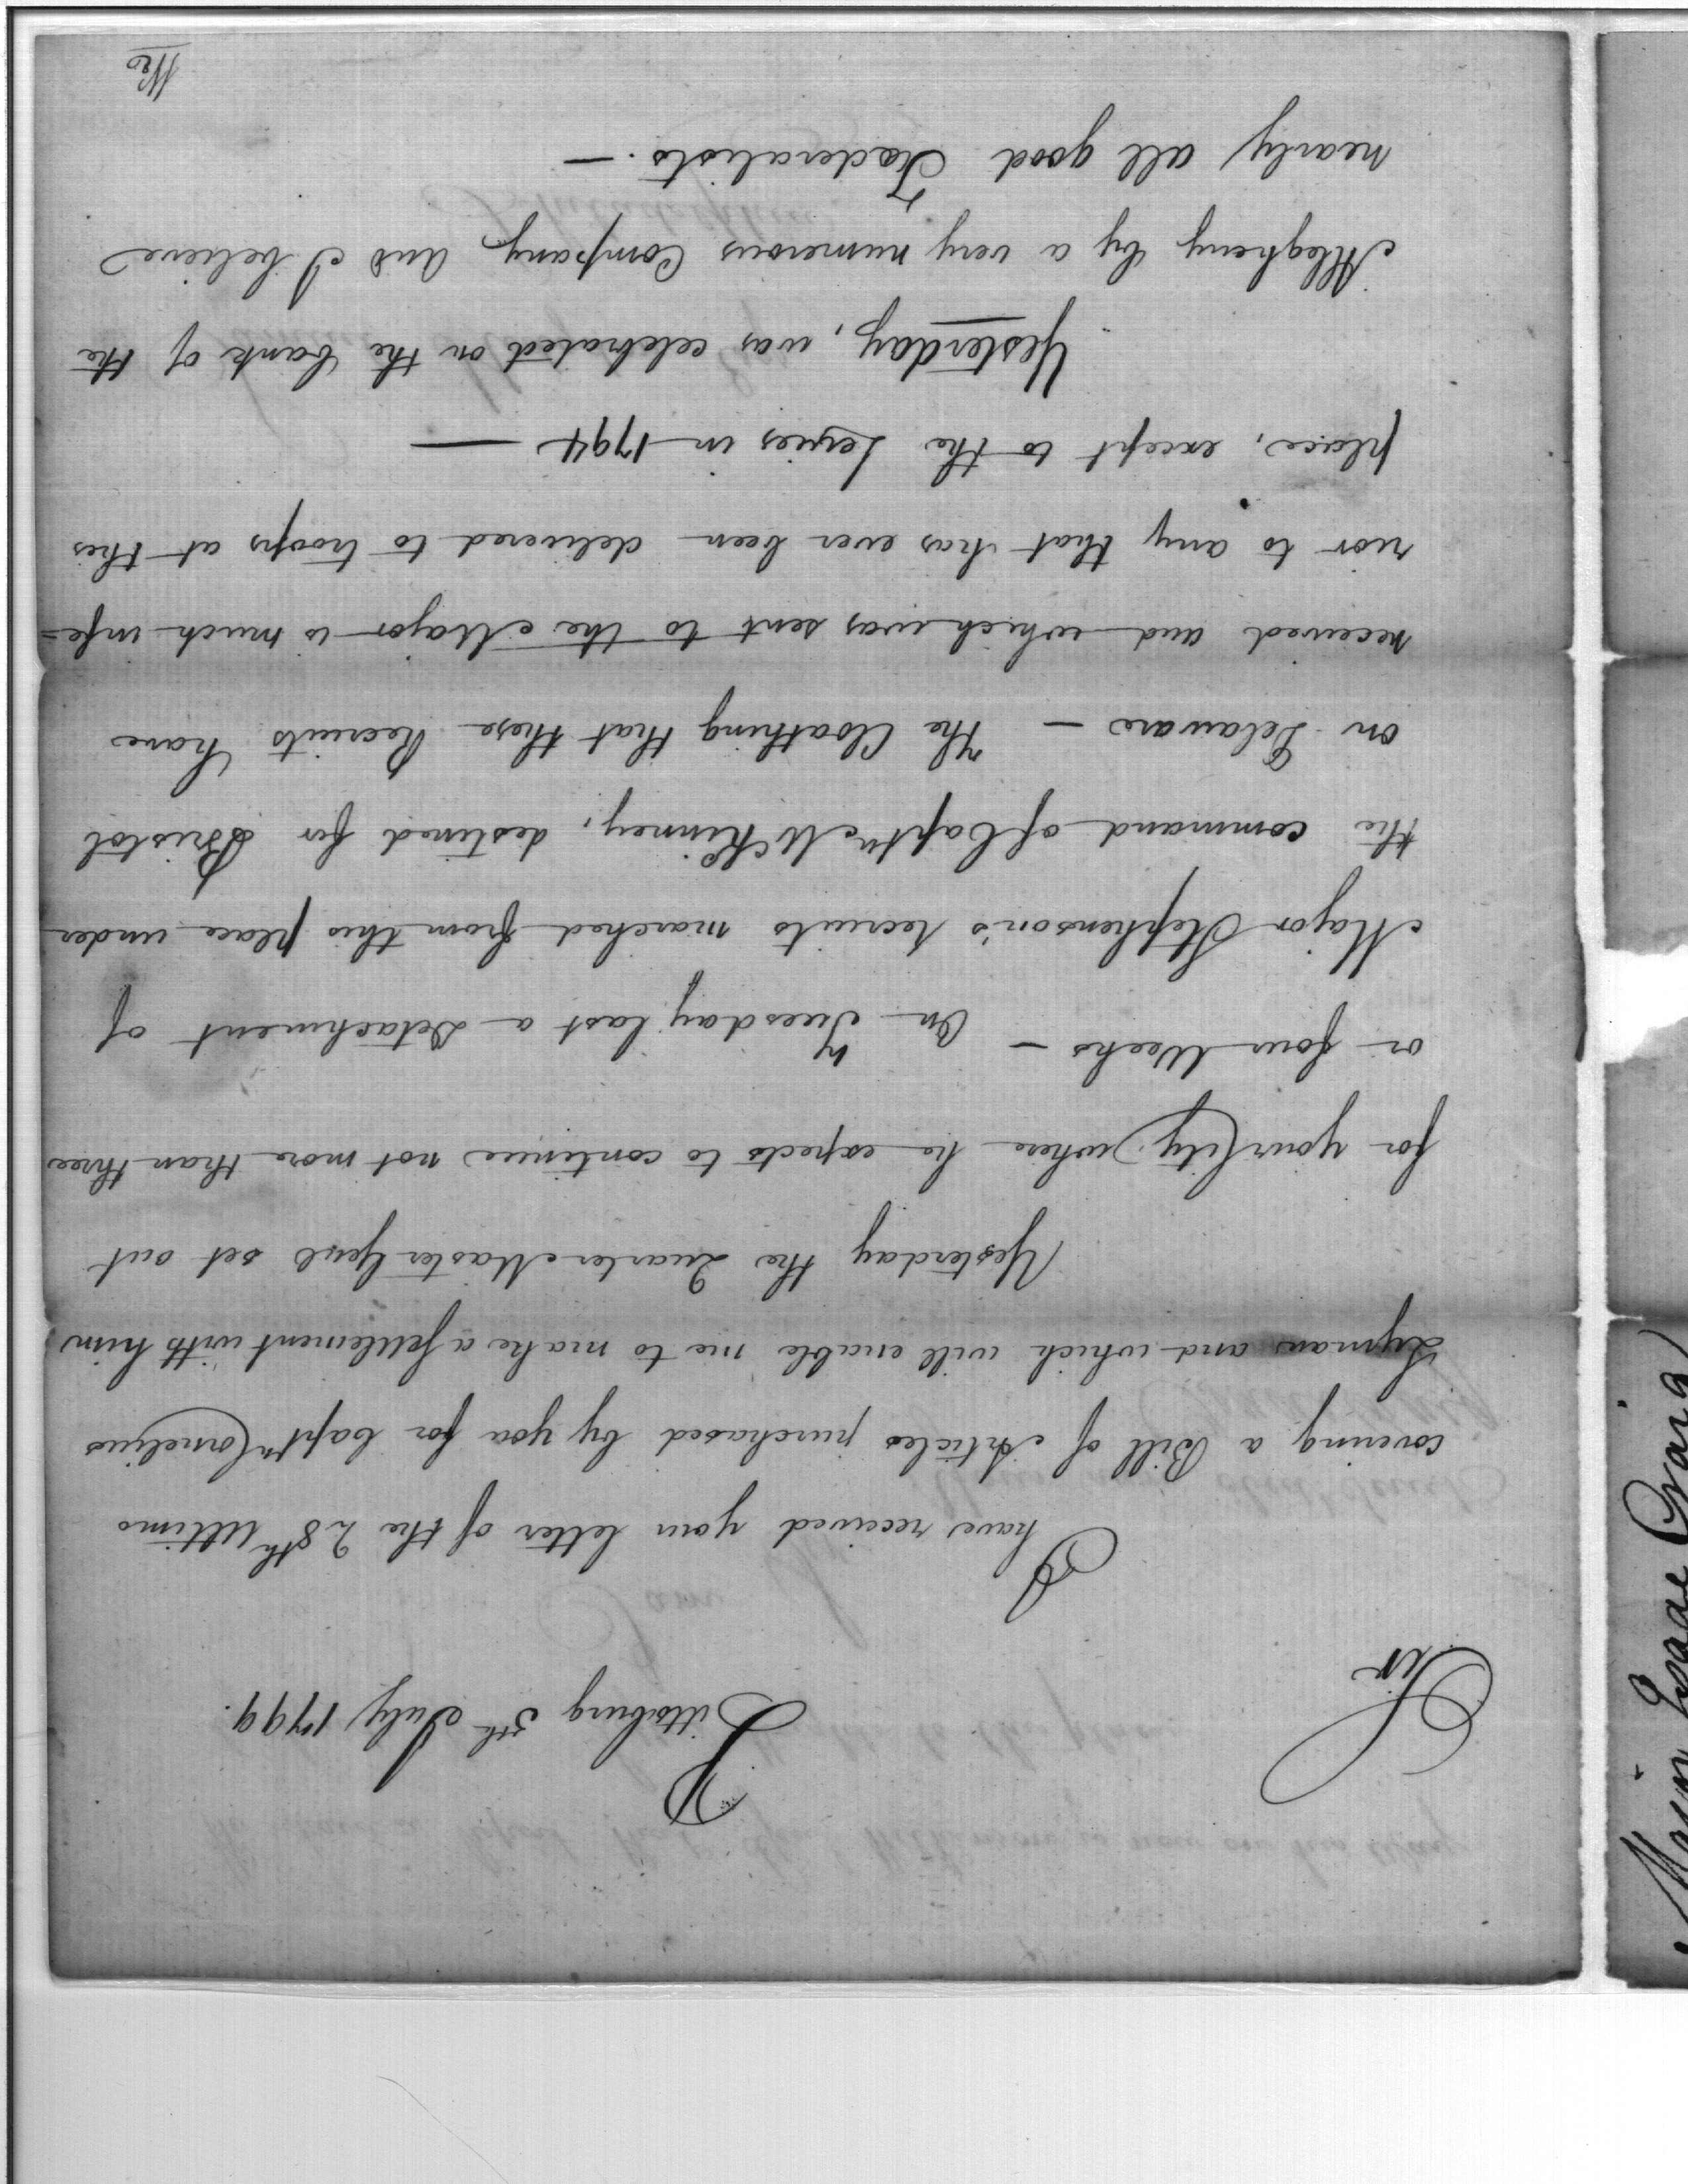 Pittsburg 5th July 1799.
Sir
I have received your letter of the 28th Ultimo
covering a Bill of Articles purchased by you for Captn Cornelius
Lyman and which will enable me to make a settlement with him
Yesterday the Quarter Master Genl set out
for your City where he expects to continue not more than three
or four Weeks — On Tuesday last a Detachment of
Major Stephenson's recruits marched from this place under
the command of Captn McKinney, destined for Bristol
on Delaware — The Cloathing that these Recruits have
received and which was sent to the Major is much infe=
rior to any that has ever been delivered to troops at this
place, except to the Levies in 1794 —
Yesterday, was celebrated on the bank of the
Allegheny by a very numerous Company and I believe
nearly all good Fæderalists. —
We
Major Isaac Craig